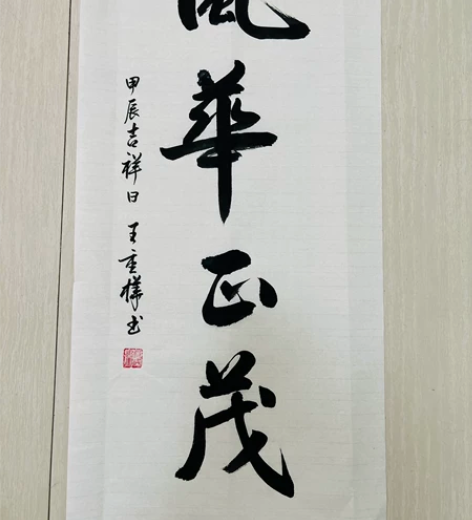 風華正茂
甲辰吉祥日 王重樣书